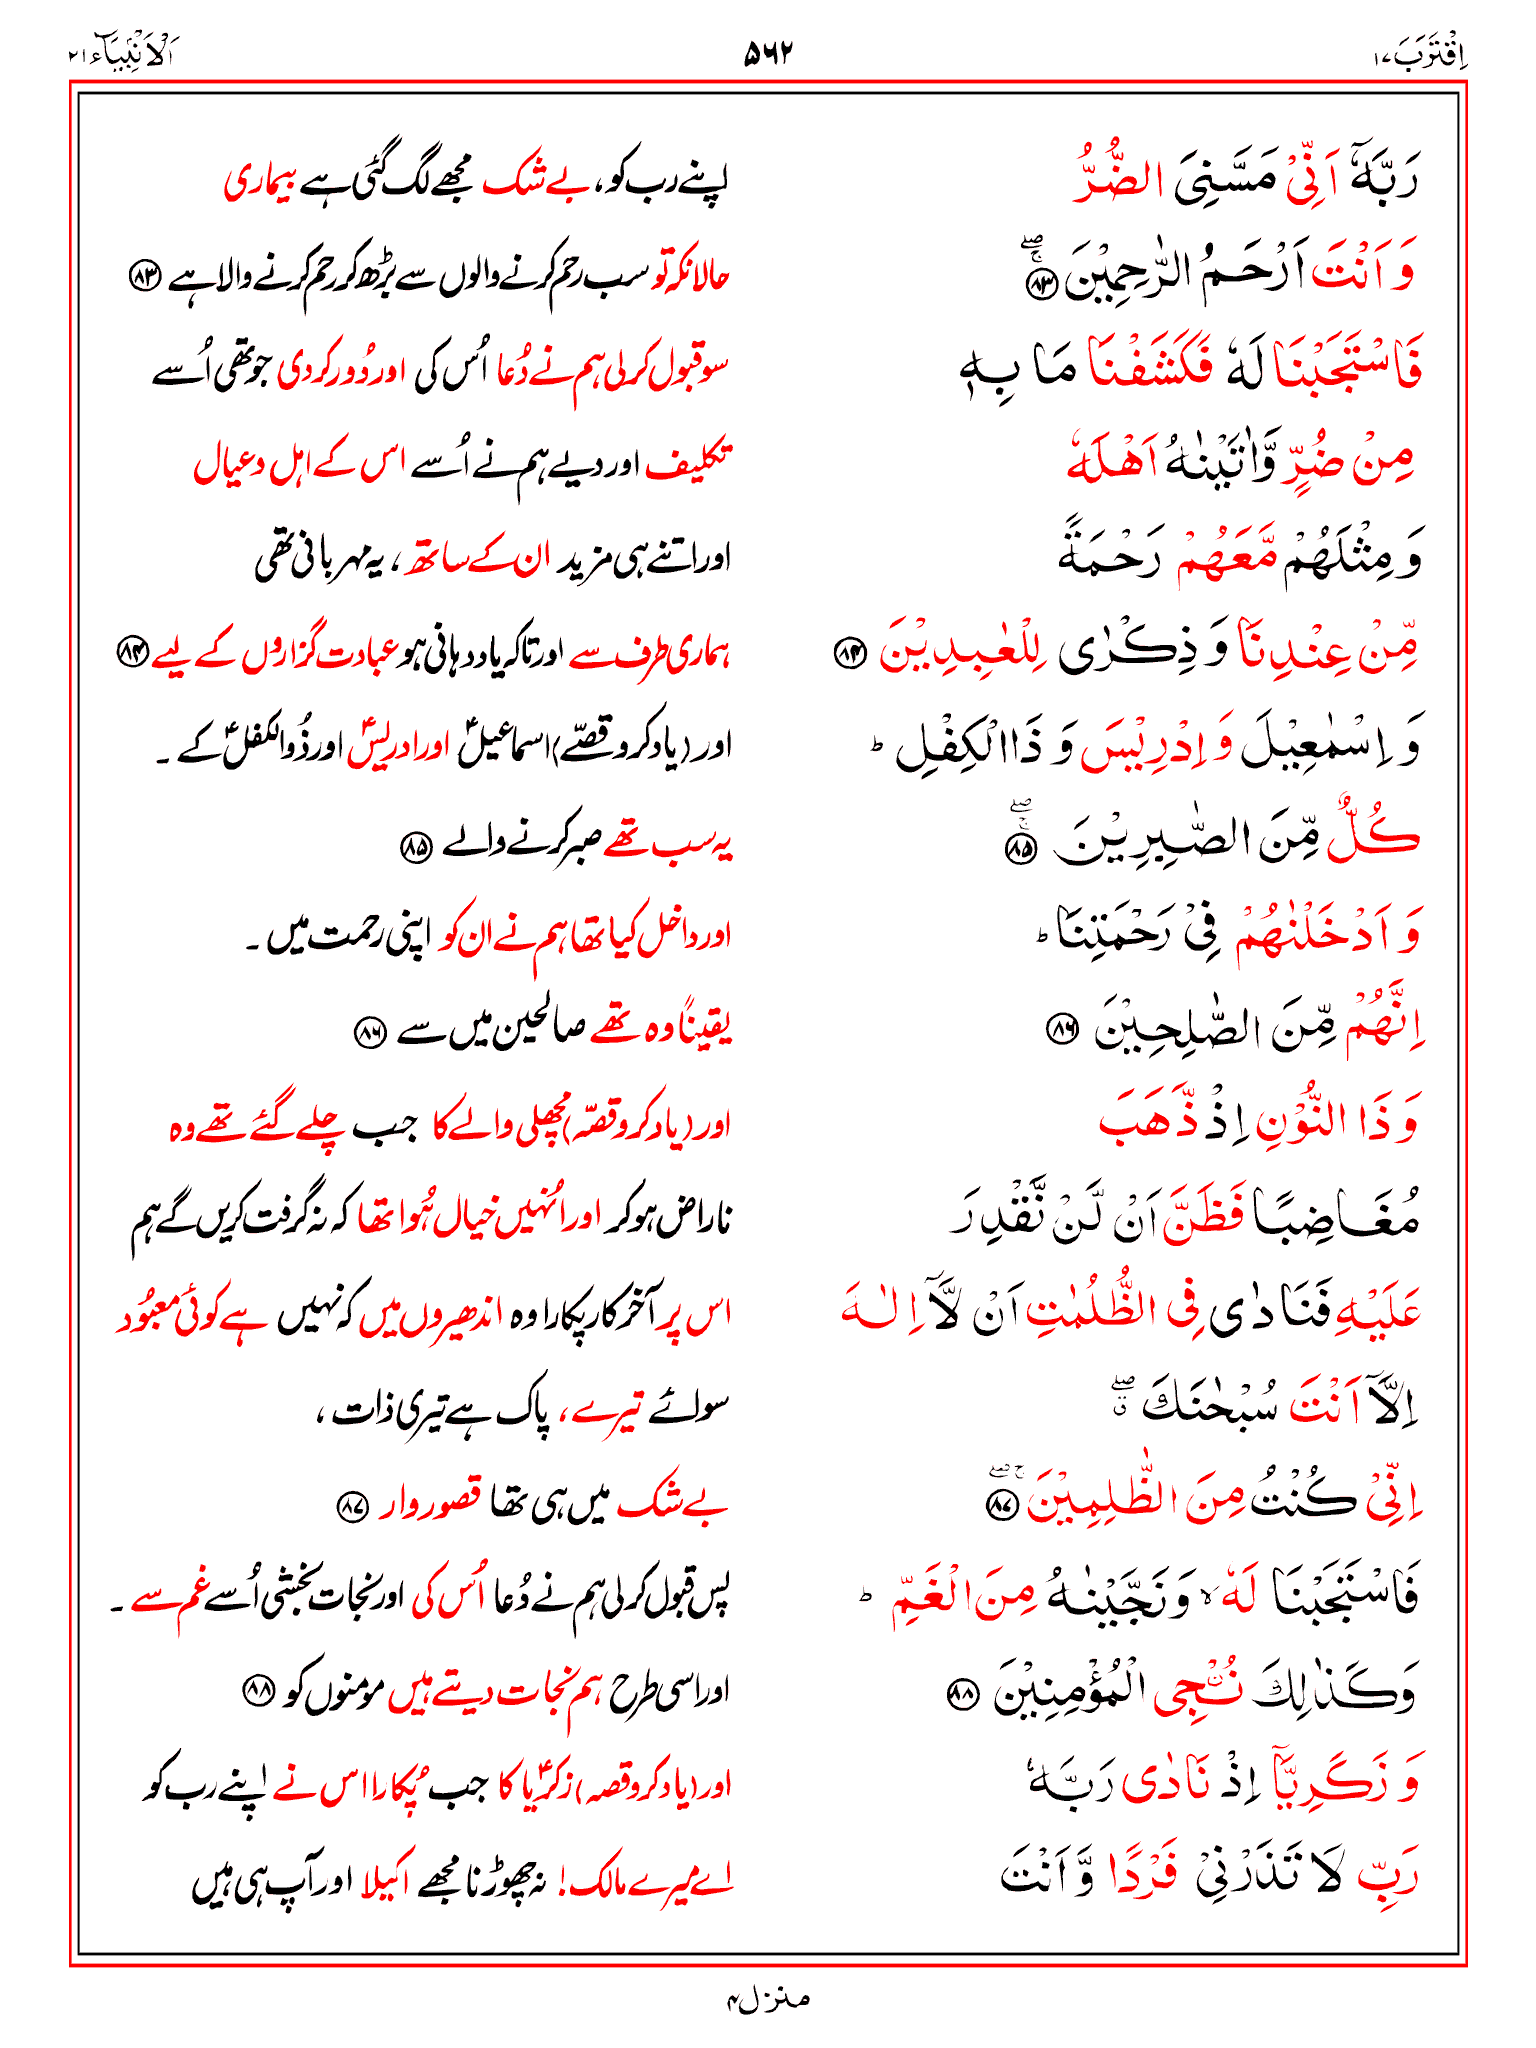 اِقْتَرَبَ ۱۷
۵۶۲
اَلْاَنْۢبِيَآء ۲۱
رَبَّهٗۤ اَنِّیْ مَسَّنِیَ الضُّرُّ
اپنے رب کو، بے شک مجھے لگ گئی ہے بیماری
وَ اَنْتَ اَرْحَمُ الرّٰحِمِیْنَ ۚۖ ﴿۸۳﴾
حالانکہ تو سب رحم کرنے والوں سے بڑھ کر رحم کرنے والا ہے ﴿۸۳﴾
فَاسْتَجَبْنَا لَهٗ فَكَشَفْنَا مَا بِهٖ
سو قبول کرلی ہم نے دُعا اُس کی اور دُور کردی جو تھی اُسے
مِنْ ضُرٍّ وَّاٰتَیْنٰهُ اَهْلَهٗ
تکلیف اور دیے ہم نے اُسے اس کے اہل دعیال
وَ مِثْلَهُمْ مَّعَهُمْ رَحْمَةً
اور اتنے ہی مزید ان کے ساتھ، یہ مہربانی تھی
مِّنْ عِنْدِنَا وَ ذِكْرٰی لِلْعٰبِدِیْنَ ﴿۸۴﴾
ہماری طرف سے اور تاکہ یاددہانی ہو عبادت گزاروں کے لیے ﴿۸۴﴾
وَ اِسْمٰعِیْلَ وَ اِدْرِیْسَ وَ ذَا الْكِفْلِ ؕ
اور (یاد کرو قصّے) اسماعیلؑ اور ادریسؑ اور ذُوالکفلؑ کے۔
كُلٌّ مِّنَ الصّٰبِرِیْنَ ۚۖ ﴿۸۵﴾
یہ سب تھے صبر کرنے والے ﴿۸۵﴾
وَ اَدْخَلْنٰهُمْ فِیْ رَحْمَتِنَا ؕ
اور داخل کیا تھا ہم نے ان کو اپنی رحمت میں۔
اِنَّهُمْ مِّنَ الصّٰلِحِیْنَ ﴿۸۶﴾
یقیناً وہ تھے صالحین میں سے ﴿۸۶﴾
وَ ذَا النُّوْنِ اِذْ ذَّهَبَ
اور (یاد کرو قصّہ) مچھلی والے کا جب چلے گئے تھے وہ
مُغَاضِبًا فَظَنَّ اَنْ لَّنْ نَّقْدِرَ
ناراض ہوکر اور اُنھیں خیال ہُوا تھا کہ نہ گرفت کریں گے ہم
عَلَیْهِ فَنَادٰی فِی الظُّلُمٰتِ اَنْ لَّاۤ اِلٰهَ
اس پر آخر کار پکارا وہ اندھیروں میں کہ نہیں ہے کوئی معبُود
اِلَّاۤ اَنْتَ سُبْحٰنَكَ ۖۗ
سوائے تیرے، پاک ہے تیری ذات،
اِنِّیْ كُنْتُ مِنَ الظّٰلِمِیْنَ ۚۖ ﴿۸۷﴾
بے شک میں ہی تھا قصوروار ﴿۸۷﴾
فَاسْتَجَبْنَا لَهٗ ۙ وَ نَجَّیْنٰهُ مِنَ الْغَمِّ ؕ
پس قبول کرلی ہم نے دُعا اُس کی اور نجات بخشی اُسے غم سے۔
وَ كَذٰلِكَ نُـْۨجِی الْمُؤْمِنِیْنَ ﴿۸۸﴾
اور اسی طرح ہم نجات دیتے ہیں مومنوں کو ﴿۸۸﴾
وَ زَكَرِیَّاۤ اِذْ نَادٰی رَبَّهٗ
اور (یاد کرو قصہ) زکریاؑ کا جب پُکارا اس نے اپنے رب کو
رَبِّ لَا تَذَرْنِیْ فَرْدًا وَّ اَنْتَ
اے میرے مالک! نہ چھوڑنا مجھے اکیلا اور آپ ہی ہیں
منزل ۴